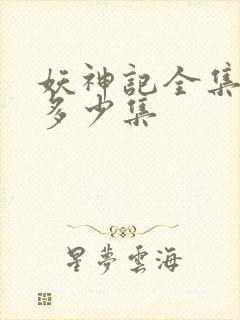 妖神記全集
多少集
星夢雲海